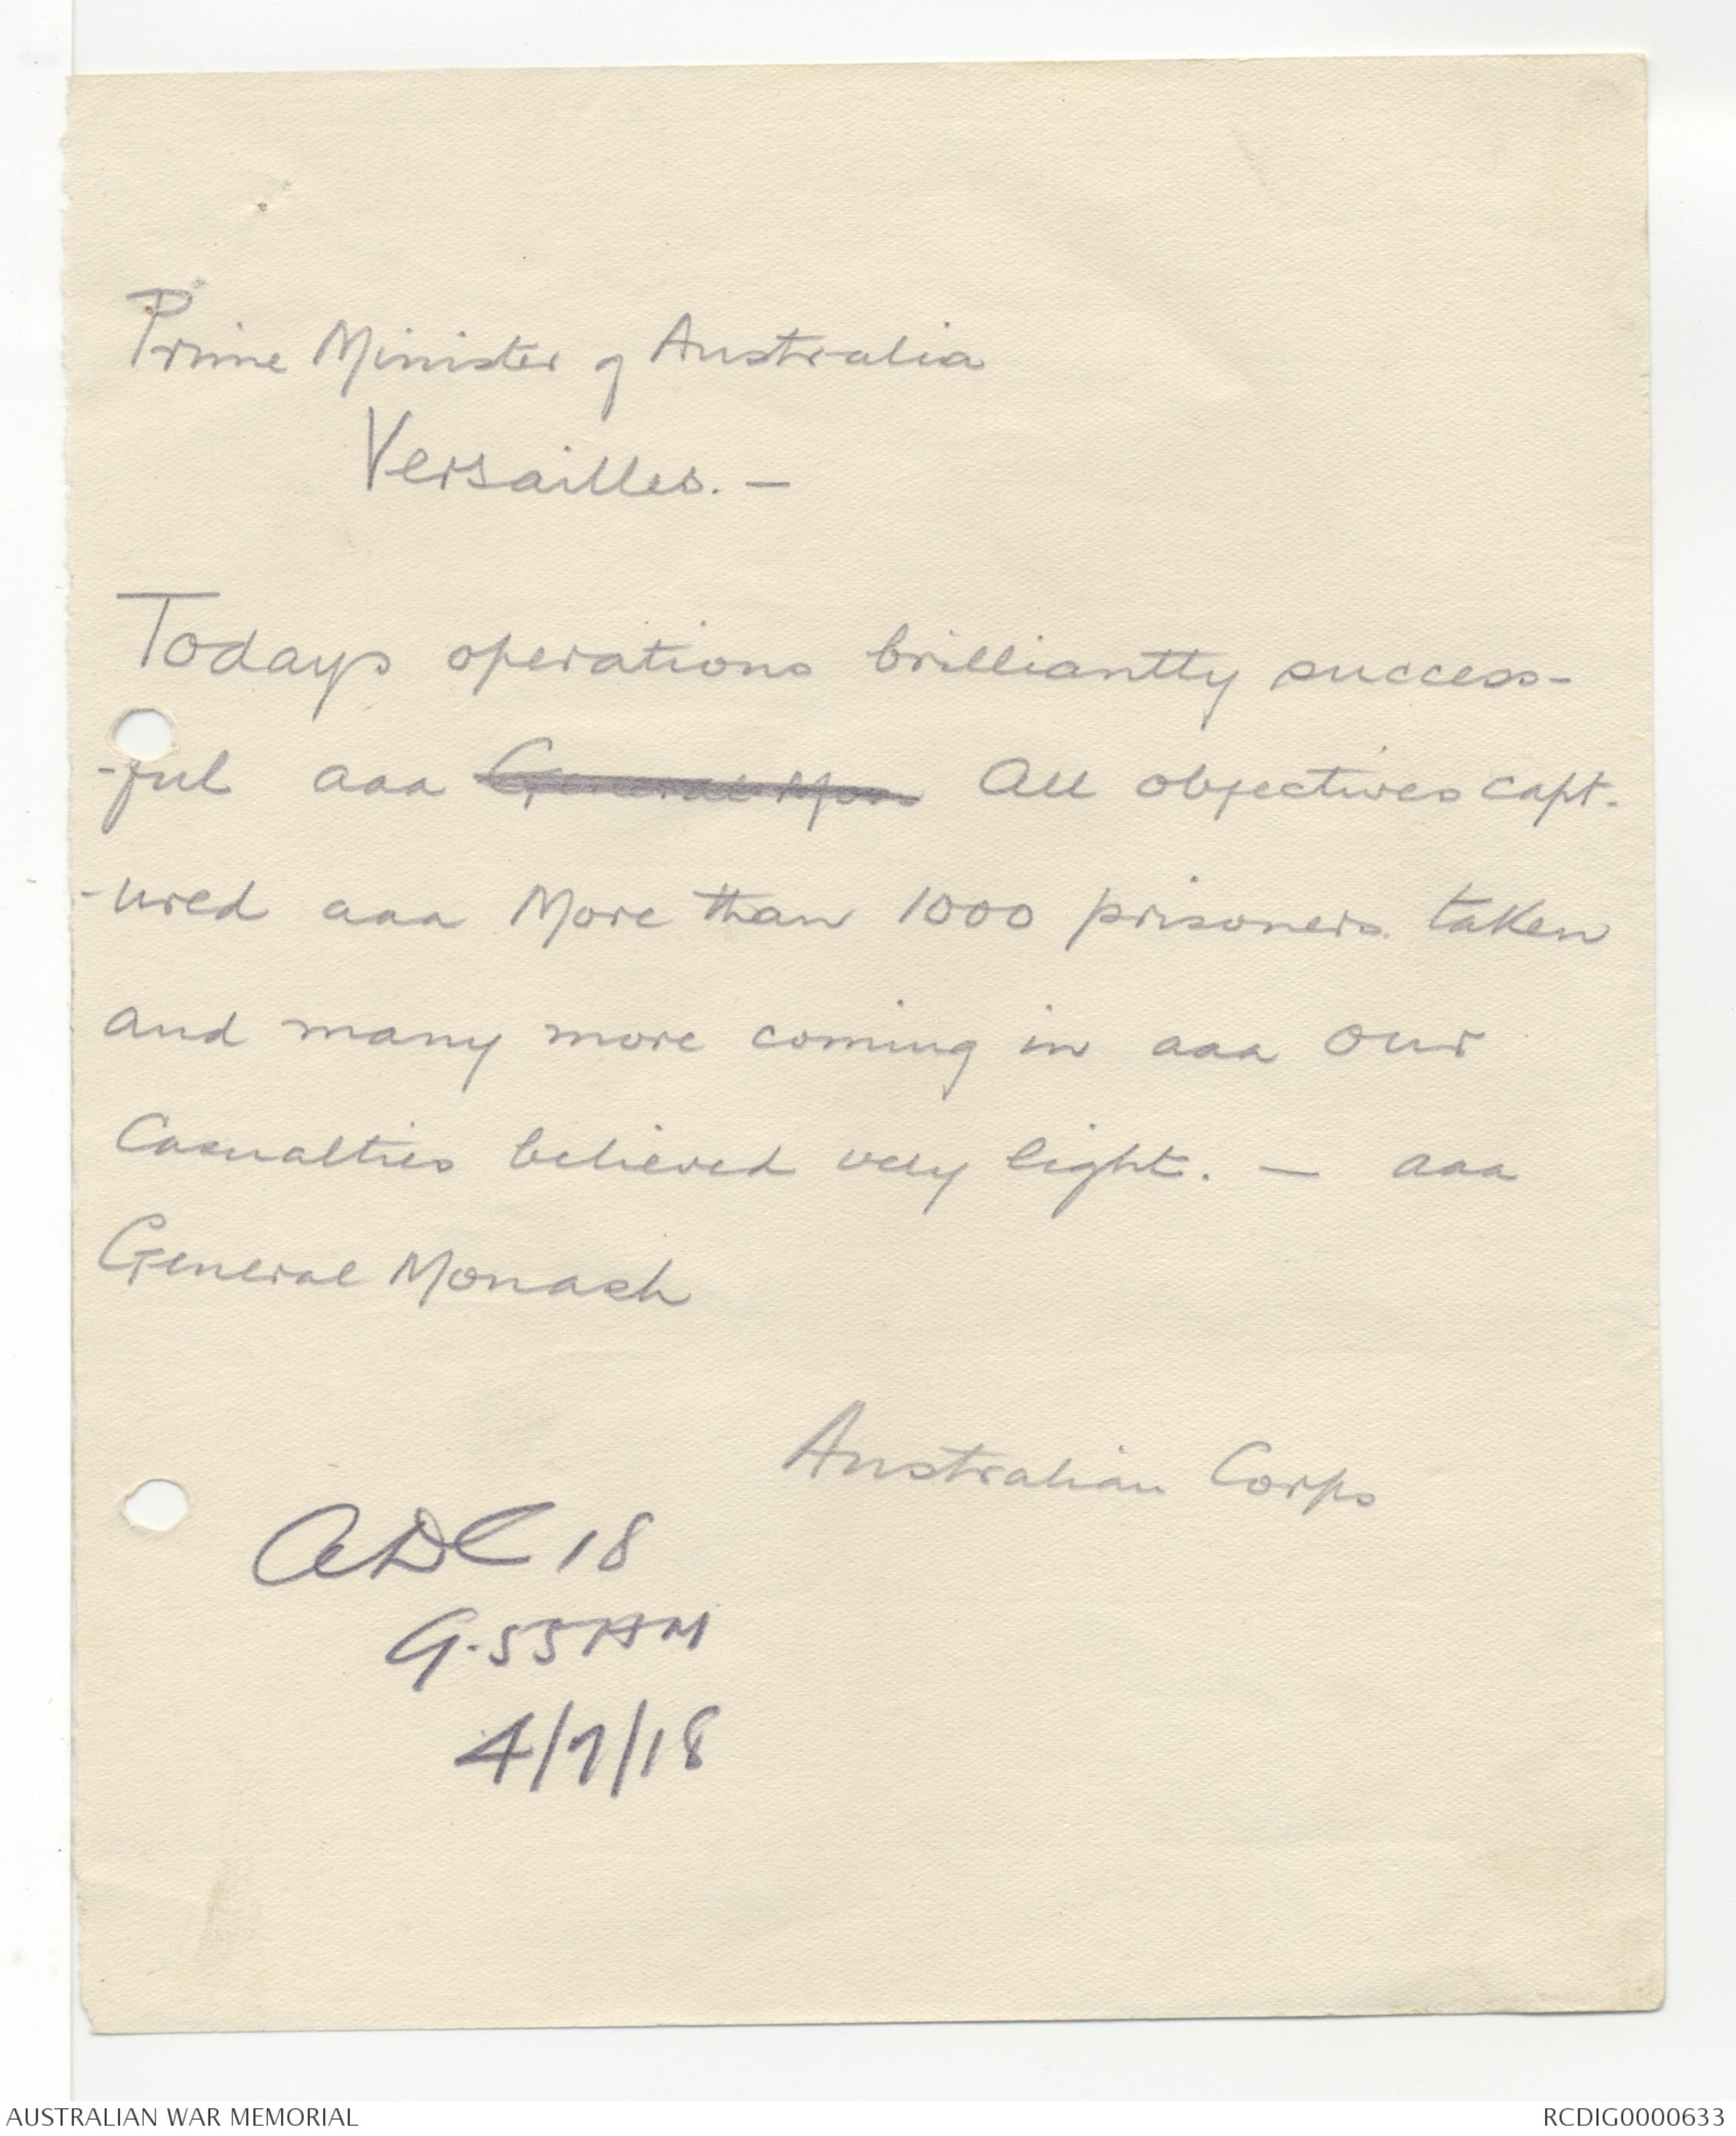 Prime Minister of Australia
Versailles. —
Todays operations brilliantly success-
-ful aaa General Mon All objectives capt-
-ured aaa More than 1000 prisoners taken
and many more coming in aaa Our
Casualties believed very light. — aaa
General Monash
Australian Corps
ADC 18
9.55AM
4/7/18
AUSTRALIAN WAR MEMORIAL
RCDIG0000633